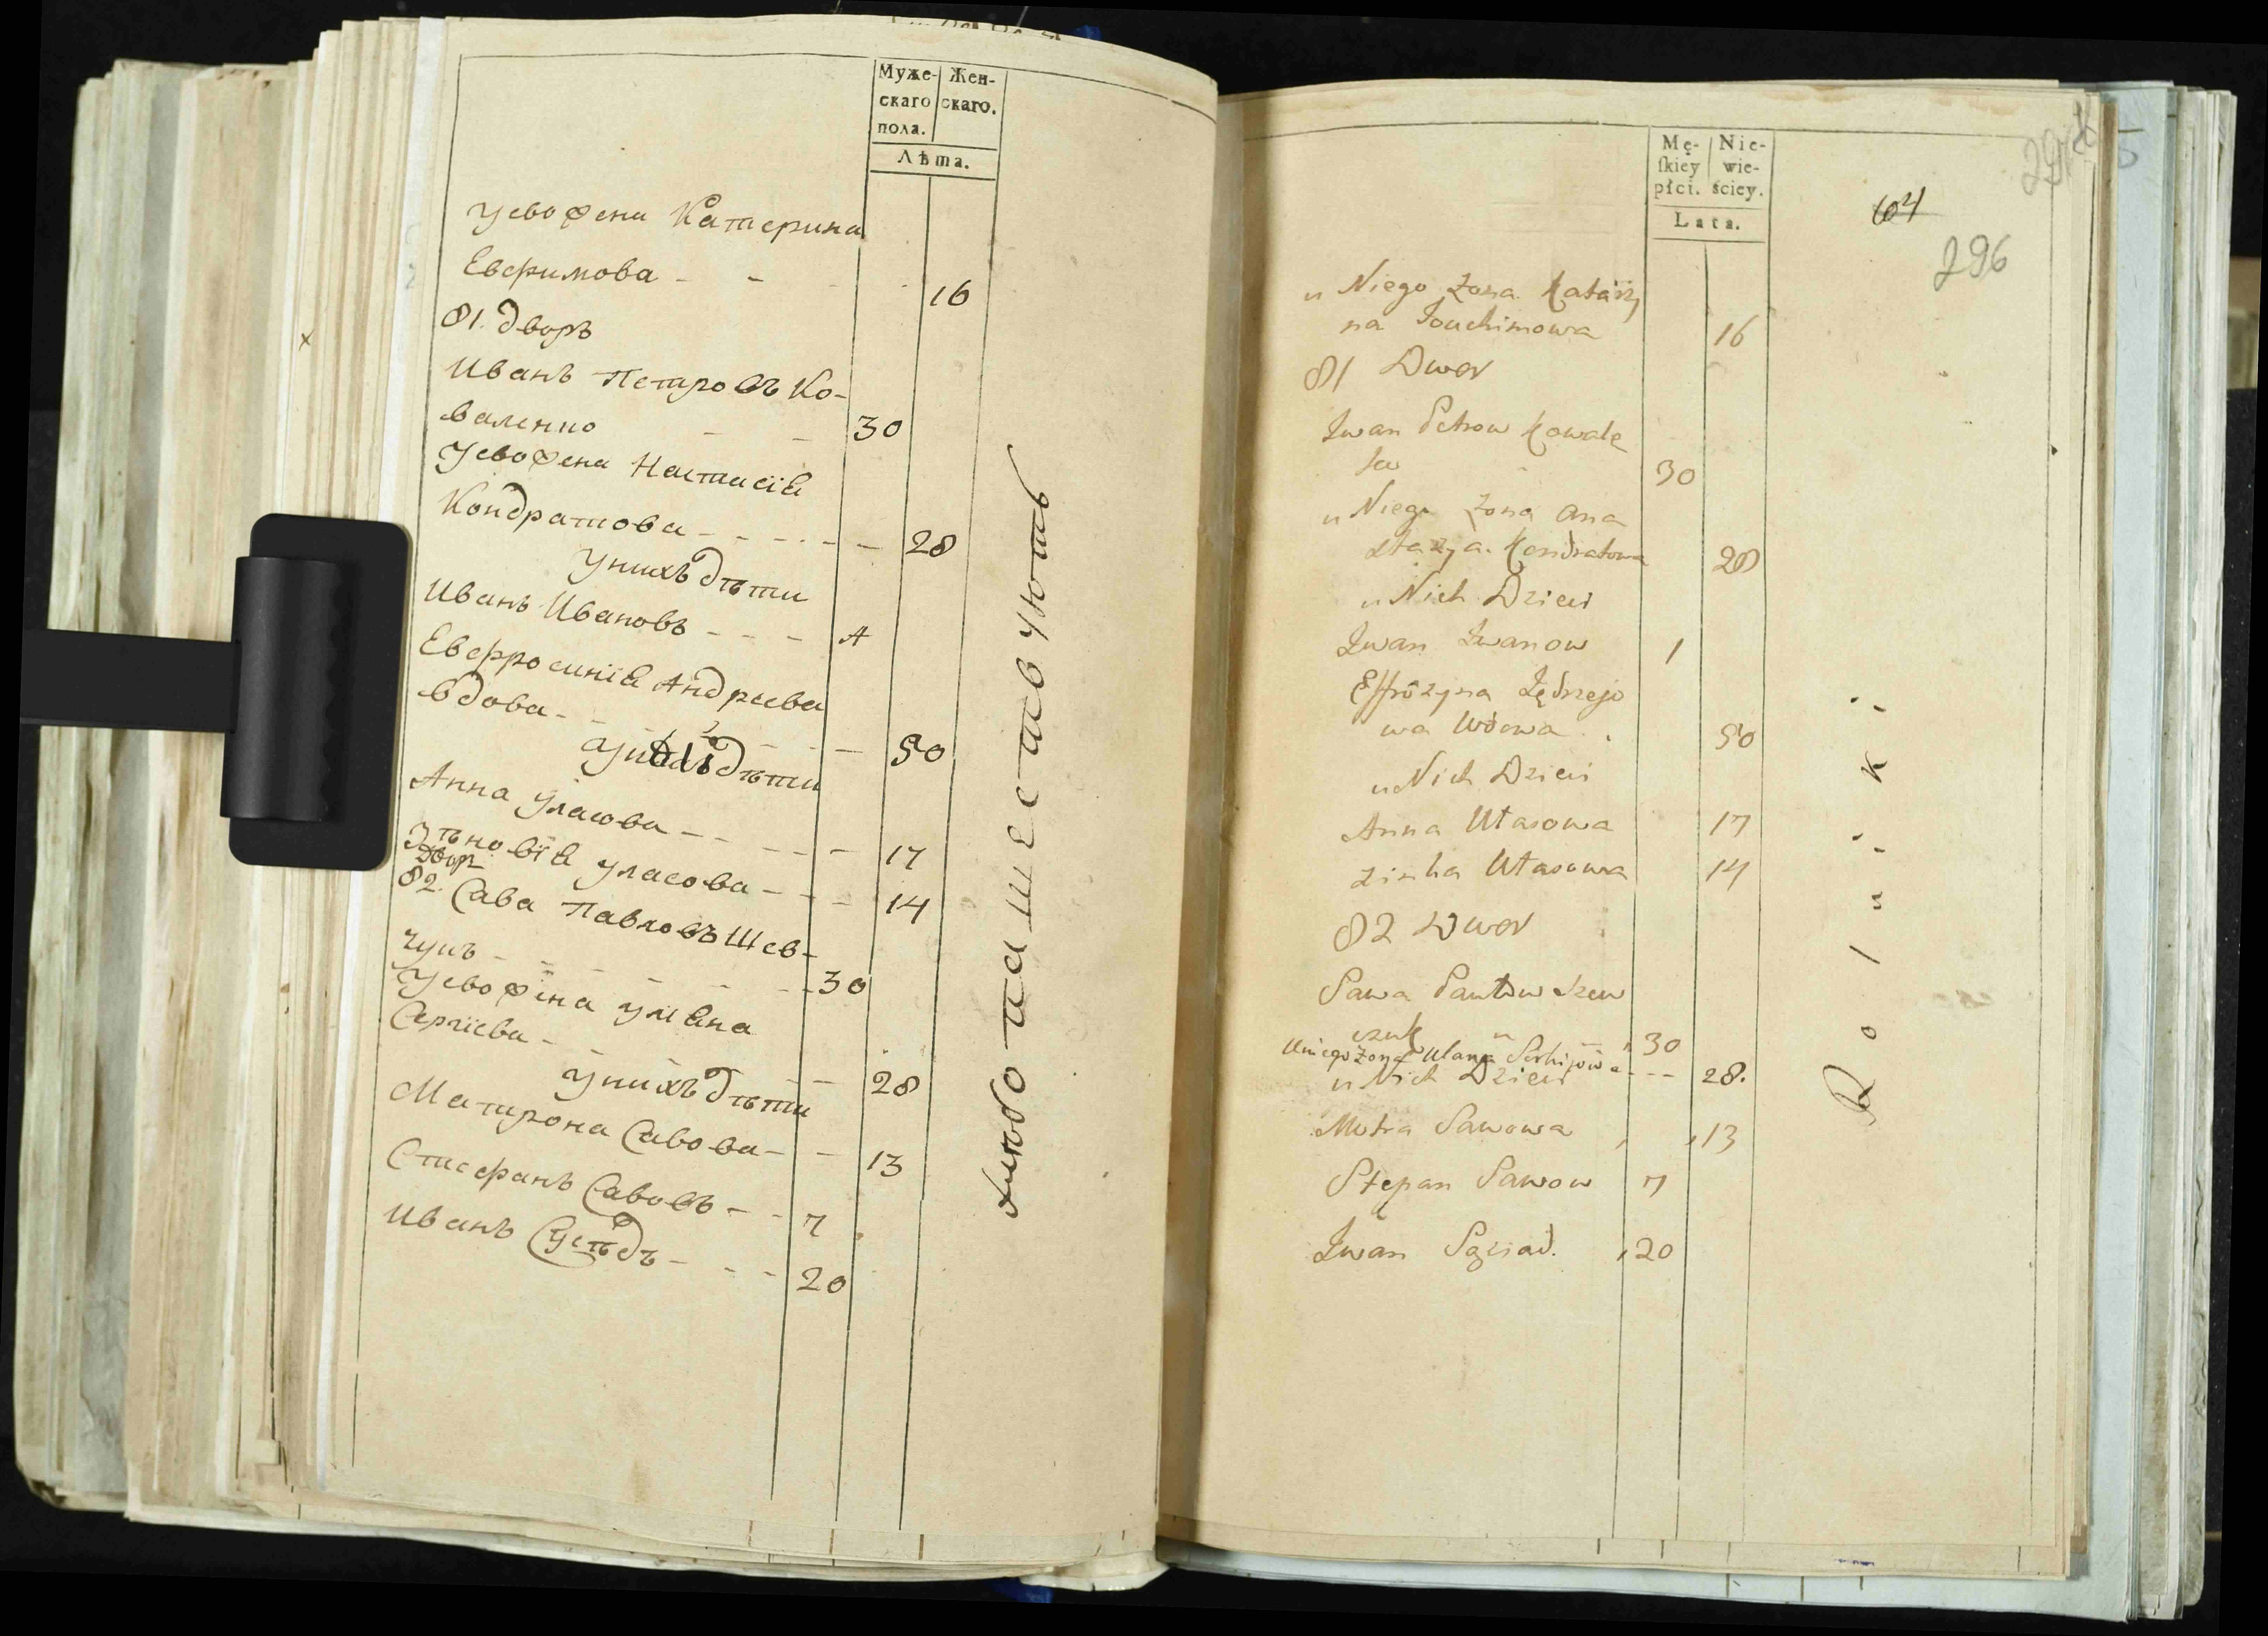 Муже-
скаго
пола.
Жен-
скаго.
Лѣта.
У евожени Катерина
Евфимова - - 16
81. дворъ
Иванъ Петровъ Ко-
валенко - - 30
У евожена Настасія
Кондратова - - - - - - 28
У нихъ дѣти
Иванъ Ивановъ - - - 1
Евфросинія Андреева
вдова - - - - - 50
У нихъ дѣти
Анна Уласова - - - - - 17
Зѣновія Уласова - - - - 14
дворъ
82. Сава Павловъ Шев-
чукъ - - - - - - 30
У евожена Уляна
Сергіева - - - - - 28
У нихъ дѣти
Матрона Савова - - 13
Стефанъ Савовъ - - 7
Иванъ Сусѣдъ - - - 20
хлѣбопашествуютъ
Mę-
skiey
płci.
Nie-
wie-
ściey.
Lata.
64
296
u Niego Żona Katarzy
na Jouchimowa 16
81 Dwor
Iwan Petrow Kowale
30
u Niego Żona Ana
stazya Kondratowa 28
u Nich Dzieci
Iwan Iwanow 1
Effrozyna Jędrzejo
wa Wdowa 50
u Nich Dzieci
Anna Ułasowa 17
Zinka Ułasowa 14
82 Dwor
Sawa Pawłow Szew
czuk 30
U niego Żona Ulana Serhijowa - - - 28.
u Nich Dzieci
Motra Sawowa 13
Stepan Sawow 7
Iwan Sąziad. 20
Rolniki